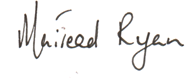 Mairead Ryan